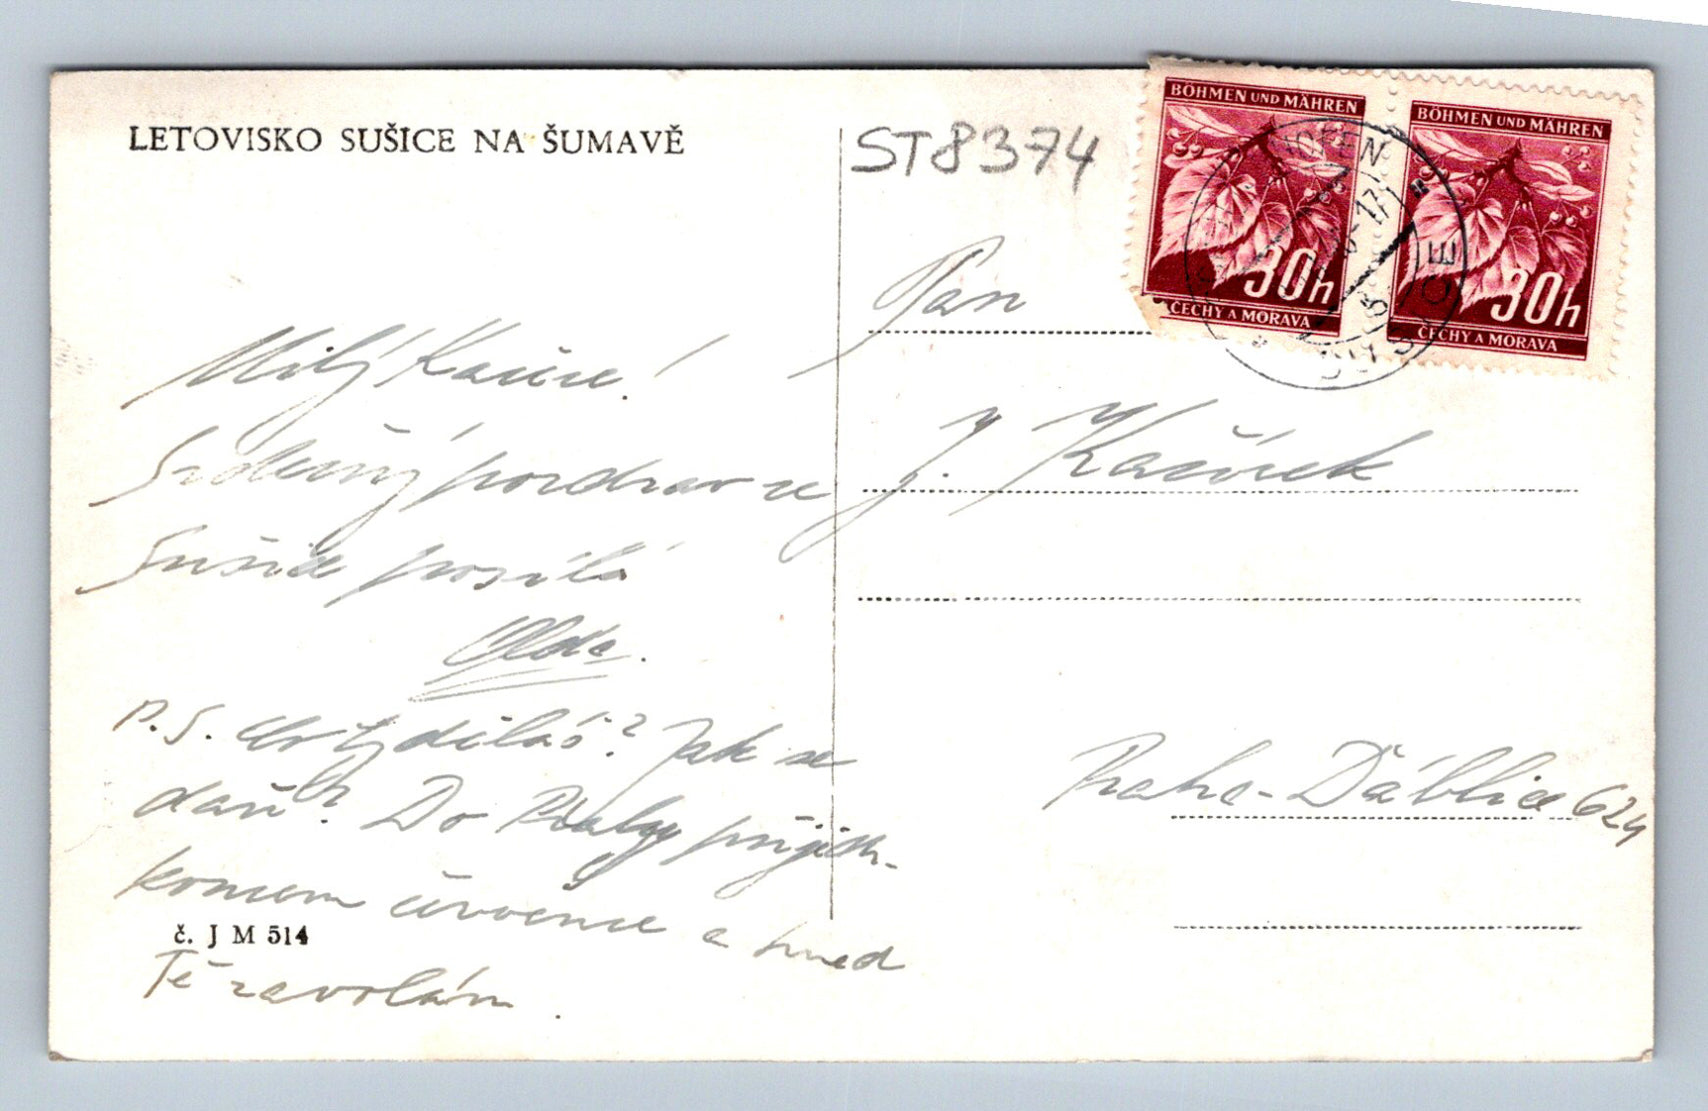 LETOVISKO SUŠICE NA ŠUMAVĚ
ST8374
BÖHMEN UND MÄHREN
30h
ČECHY A MORAVA
BÖHMEN UND MÄHREN
30h
ČECHY A MORAVA
SUŠICE
Milý
Srdečný pozdrav ze
Sušice posílá
Olda.
P.S. Co Ty děláš? Jak se
daří? Do Prahy přijedu
koncem července a hned
Tě zavolám.
č. J M 514
Pan
J. Kašírek
Praha-Ďáblice 624